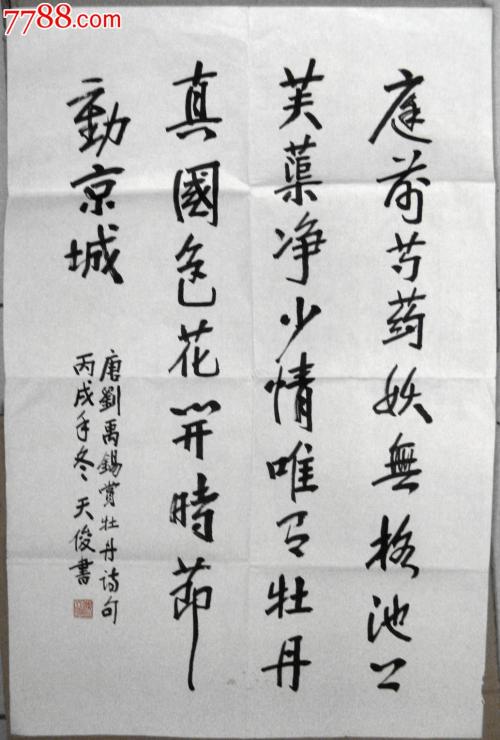 7788.com
庭前芍药妖無格池上
芙蕖净少情唯有牡丹
真國色花開時節
動京城
唐劉禹錫賞牡丹詩句
丙戌年冬天俊書